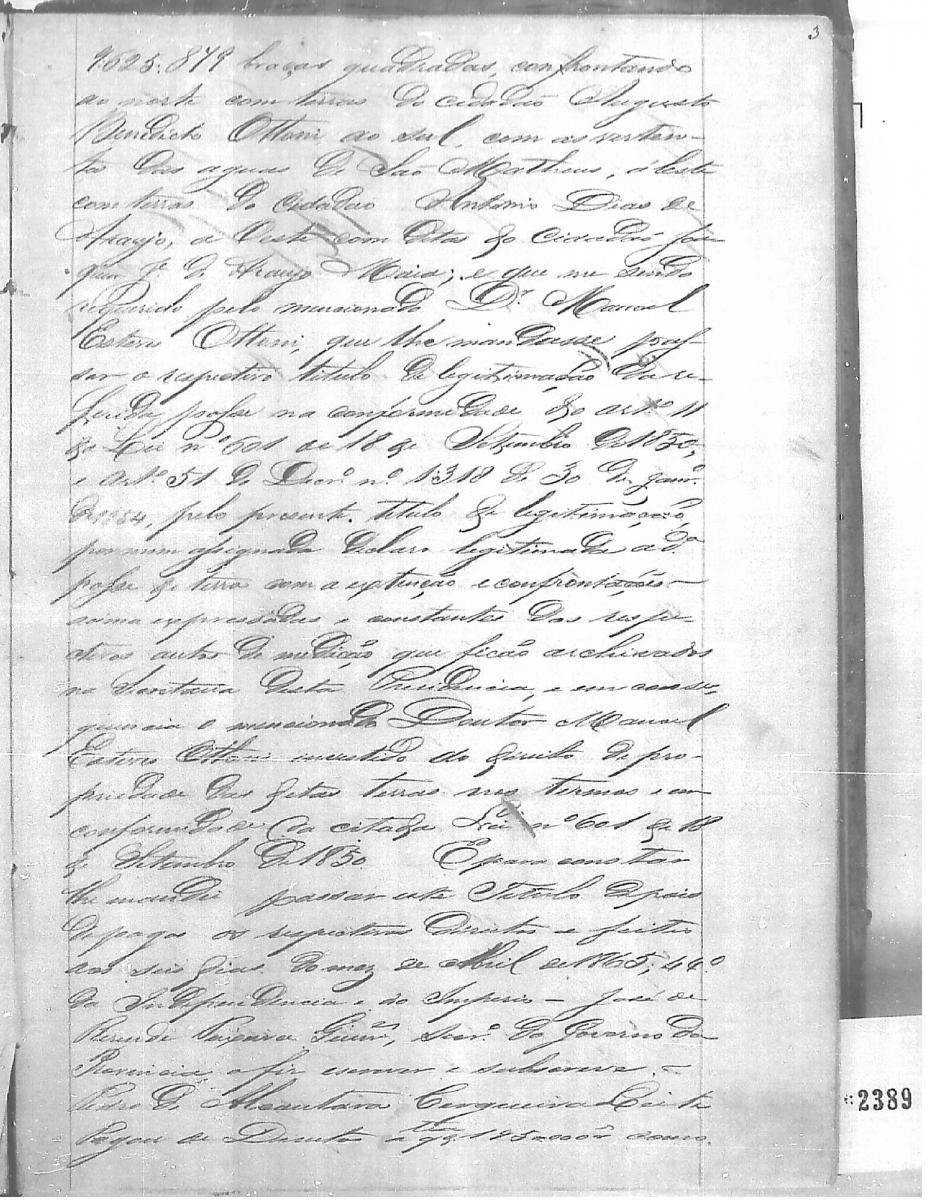 3
9525.879 braças quadradas, confrontando
ao norte com terras do cidadão Augusto
Benedicto Ottoni, ao sul, com as verten-
tes das aguas de São Matheus, á leste
com terras do cidadão Antonio Dias de
Araujo, a Oeste com ditas do cidadão Joa-
quim Je. de Araujo Maia; e que me sendo
requerido pelo mencionado Dr. Manoel
Esteves Ottoni, que lhe mandasse pas-
sar o respectivo titulo de legitimação da re-
ferida posse na conformidade do artº 11
da Lei nº 601 de 18 de Setembro de 1850,
e artº 51 do Decrº nº 1318 de 30 de Janrº
de 1854, pelo presente titulo de legitimação,
por mim assignado declaro legitimada a da
posse de terra com a extenção e confrontações
acima expressadas e constantes dos respe-
ctivos autos de medição que ficão archivados
na Secretaria desta Presidencia, e em conse-
quencia o mencionado Doutor Manoel
Esteves Ottoni investido do direito de pro-
priedade das ditas terras nos termos e em
conformidade da citada Lei nº 601 de 18
de Setembro de 1850. E para constar
lhe mandei passar este Titulo depois
de pagos os respectivos direitos e feitio
aos seis dias do mez de Abril de 1865, 44º
da Independencia e do Imperio – José de
Resende Teixeira Guimes, Secrº do Governo da
Provincia o fiz escrever e subscrevi. –
Pedro de Alcantara Cerqueira Leite
Pagou de Direitos a qta de 185 como
2389